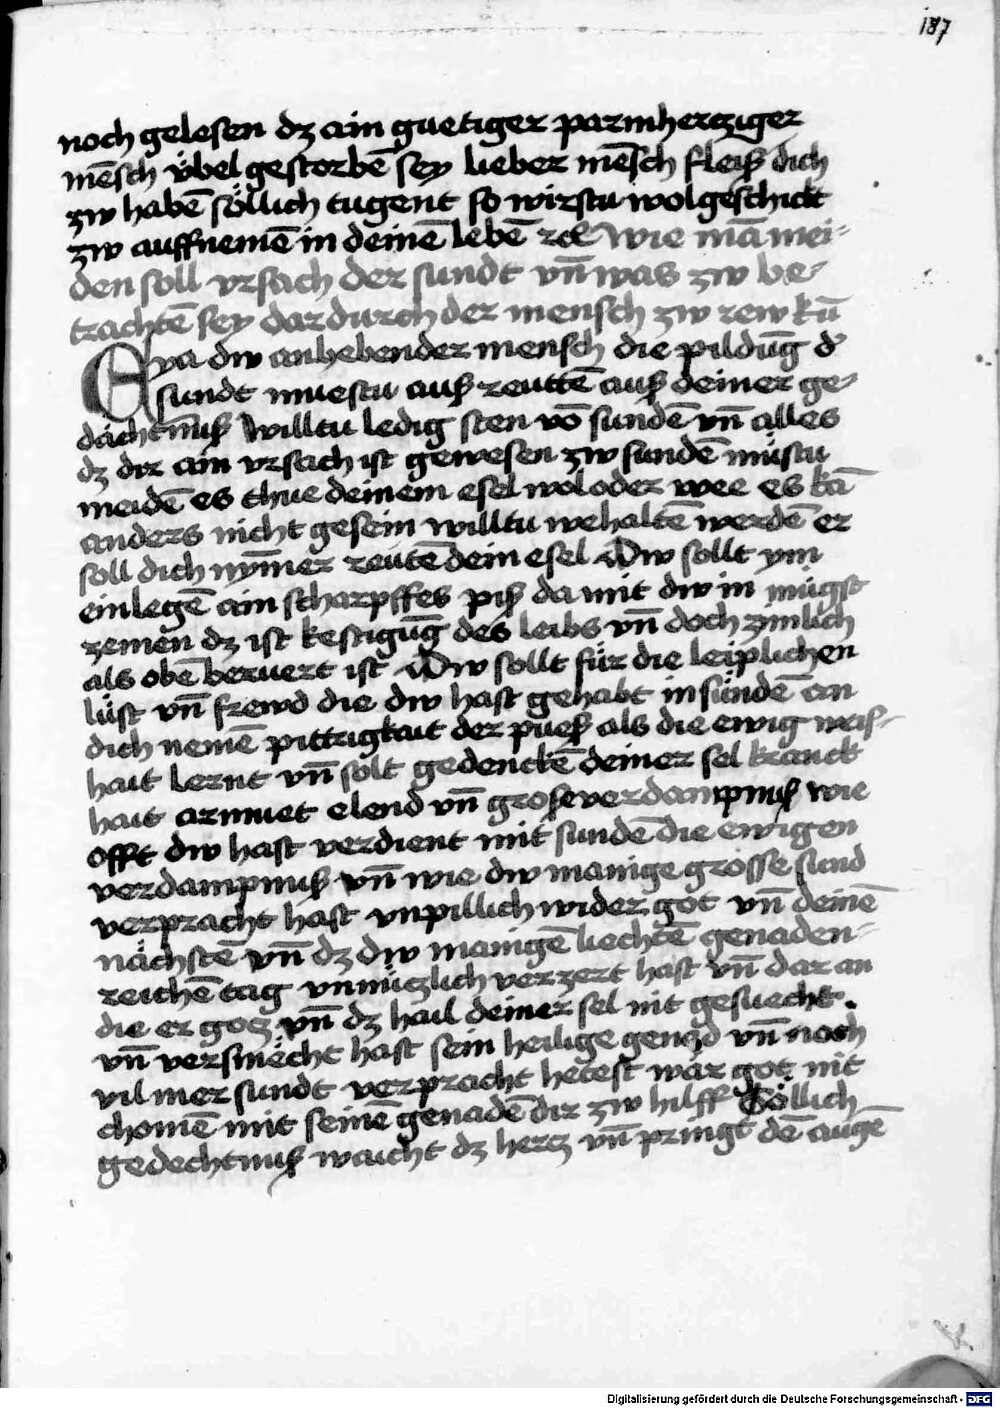 187
noch gelesen dz ain guetiger parmhercziger
mēsch übel gestorbē sey lieber mēsch fleiß dich
zw habē söllich tugent so wirstu wolgeschickt
zw auffnemē in deinē lebē wie mā mei-
den soll vrsach der sundt vn̄ was zw be-
trachtē sey dardurch der mensch zw rew kū
Eya dw anhebender mensch die pildūg d'
sundt muestu auß reuttē auß deiner ge-
dächtnuß willtu ledig sten vō sundē vn̄ alles
dz dir ain vrsach ist gewesen zw sundē müstu
meidē es thue deinem esel wol oder wee es kā
anders nicht gesein willtu wehaltē werdē er
soll dich nym̄er reutē dein esel Dw sollt ym
einlegē ain scharpffes piß da mit dw in mügst
zemen dz ist kestigūg des leibs vn̄ doch zimlich
als obē beruert ist Dw sollt für die leiplichen
lüst vn̄ frewd die dw hast gehabt in sündē an
dich nemē pittrigkait der pueß als die ewig weis-
hait lernt vn̄ solt gedenckē deiner sel kranck
hait armuet elend vn̄ große verdampnuß wie
offt dw hast verdient mit sundē die ewigen
verdampnuß vn̄ wie dw manige grosse sund
verpracht hast vnpillich wider got vn̄ deinē
nächstē vn̄ dz dw manigē liechtē genaden-
reichē tag vnnüczlich verzert hast vn̄ dar an
die er gocz vn̄ dz hail deiner sel nit gesuecht.
vn̄ versmecht hast sein heilige genad vn̄ noch
vil mer sundt verpracht hetest wär got nit
chomē mit seinē genadē dir zw hilff Söllich
gedechtnuß waicht dz hercz vn̄ pringt dē augē
Digitalisierung gefördert durch die Deutsche Forschungsgemeinschaft - DFG